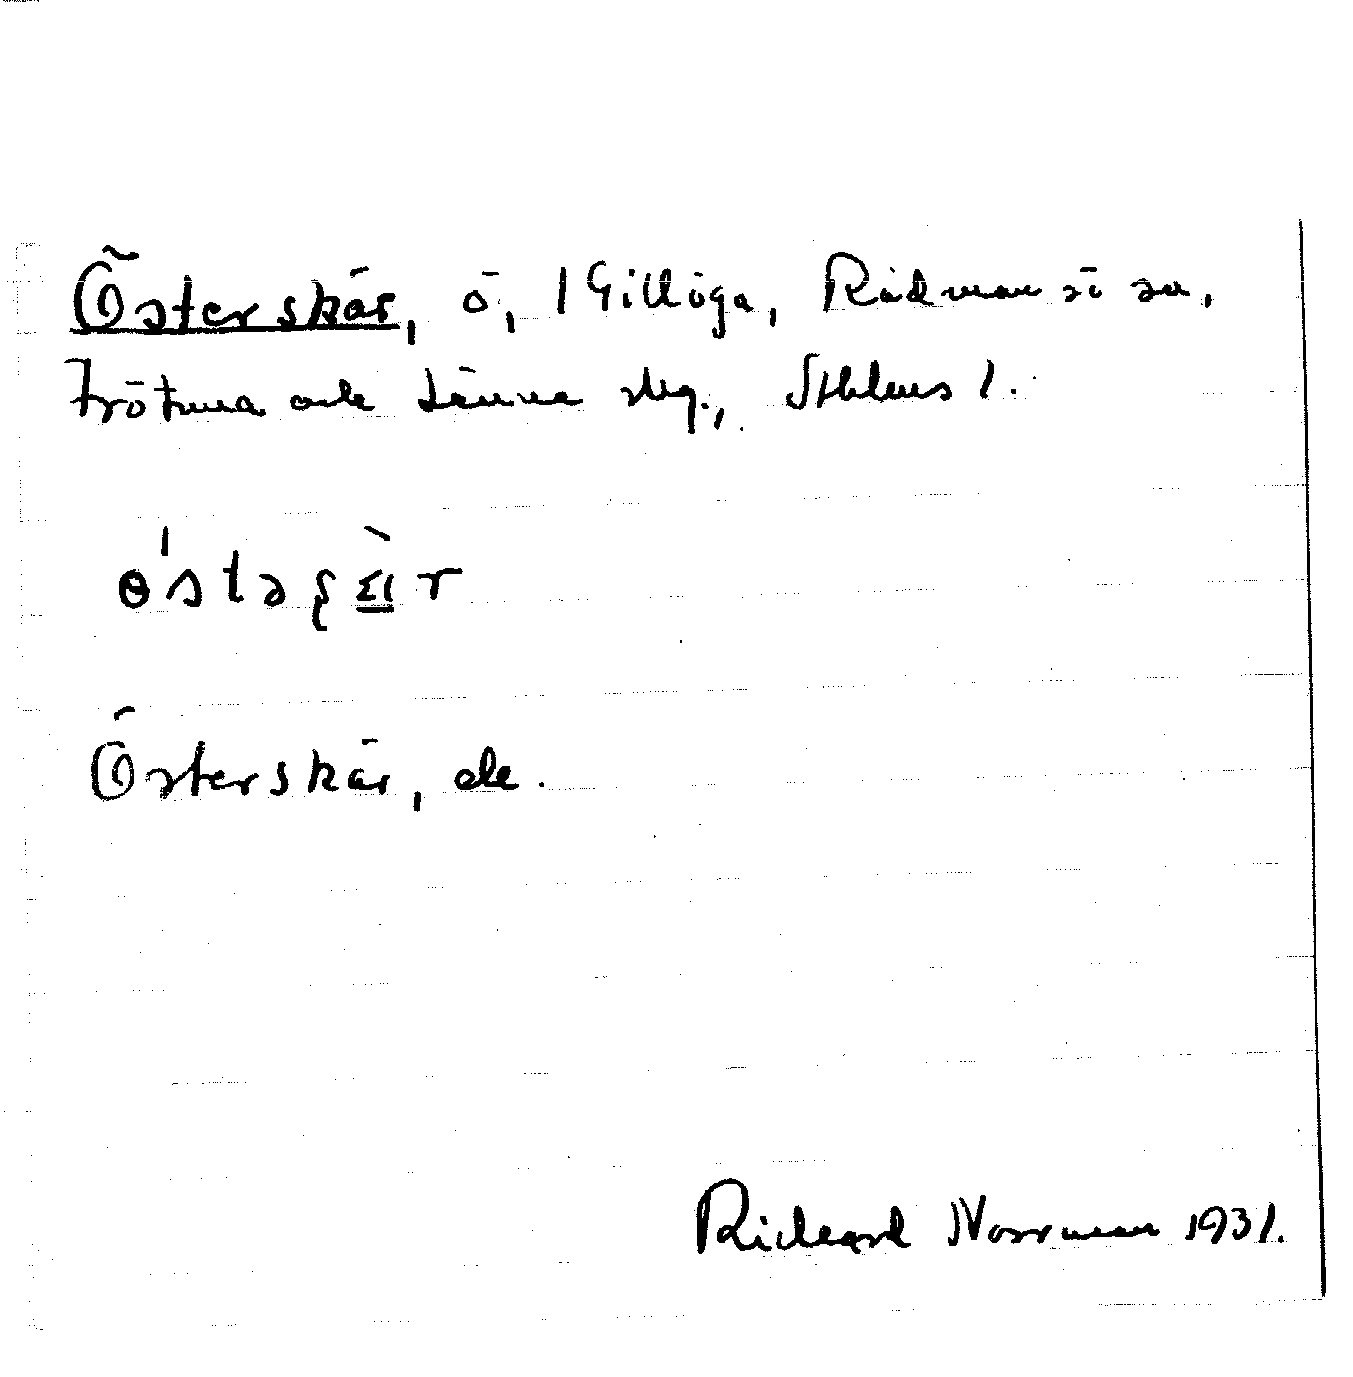 Österskär, ö, i Gillöga, Rådmansö sn,
Frötuna och Länna skg., Sthlms l.
Österskär, de.
Richard Norrman 1931.